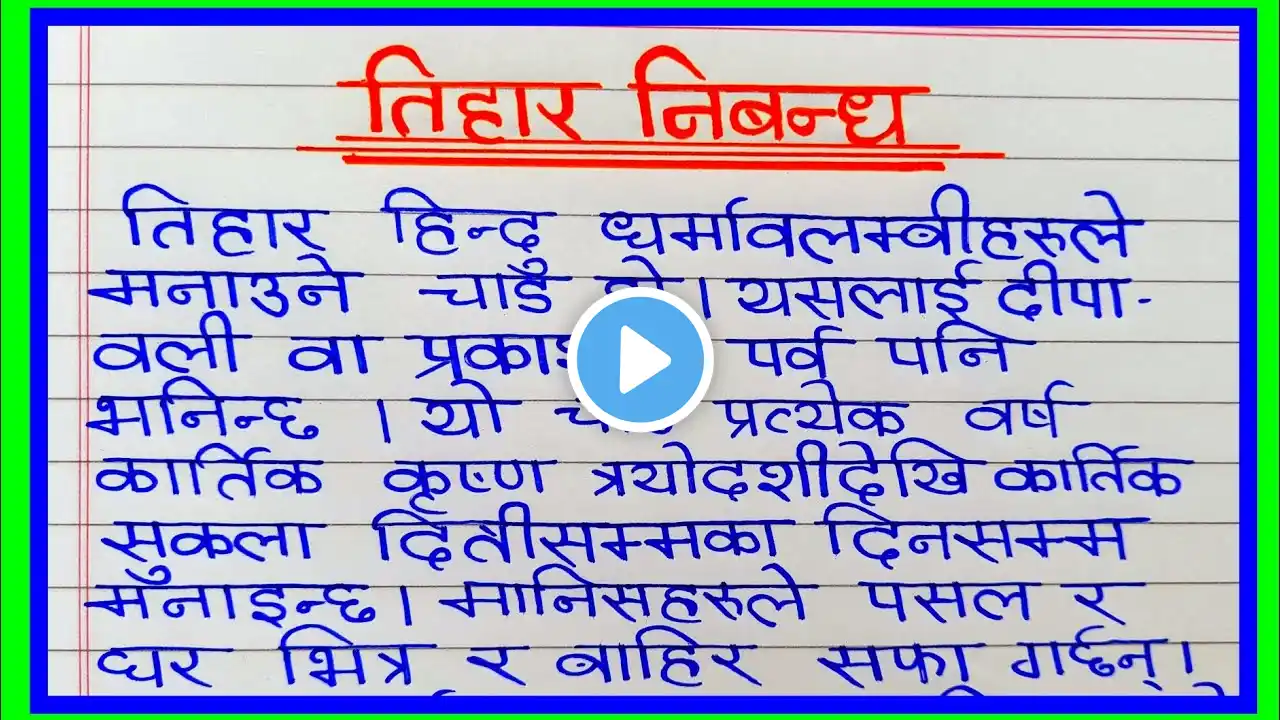 तिहार निबन्ध
तिहार हिन्दु धर्मावलम्बीहरुले
मनाउने चाड । यसलाई दीपा-
वली वा पर्व पनि
भनिन्छ । यो प्रत्येक वर्ष
कार्तिक कृष्ण त्रयोदशीदेखि कार्तिक
सुकला दितीसम्मका दिनसम्म
मनाइन्छ। मानिसहरुले पसल र
घर भित्र र बाहिर सफा गर्छन्।